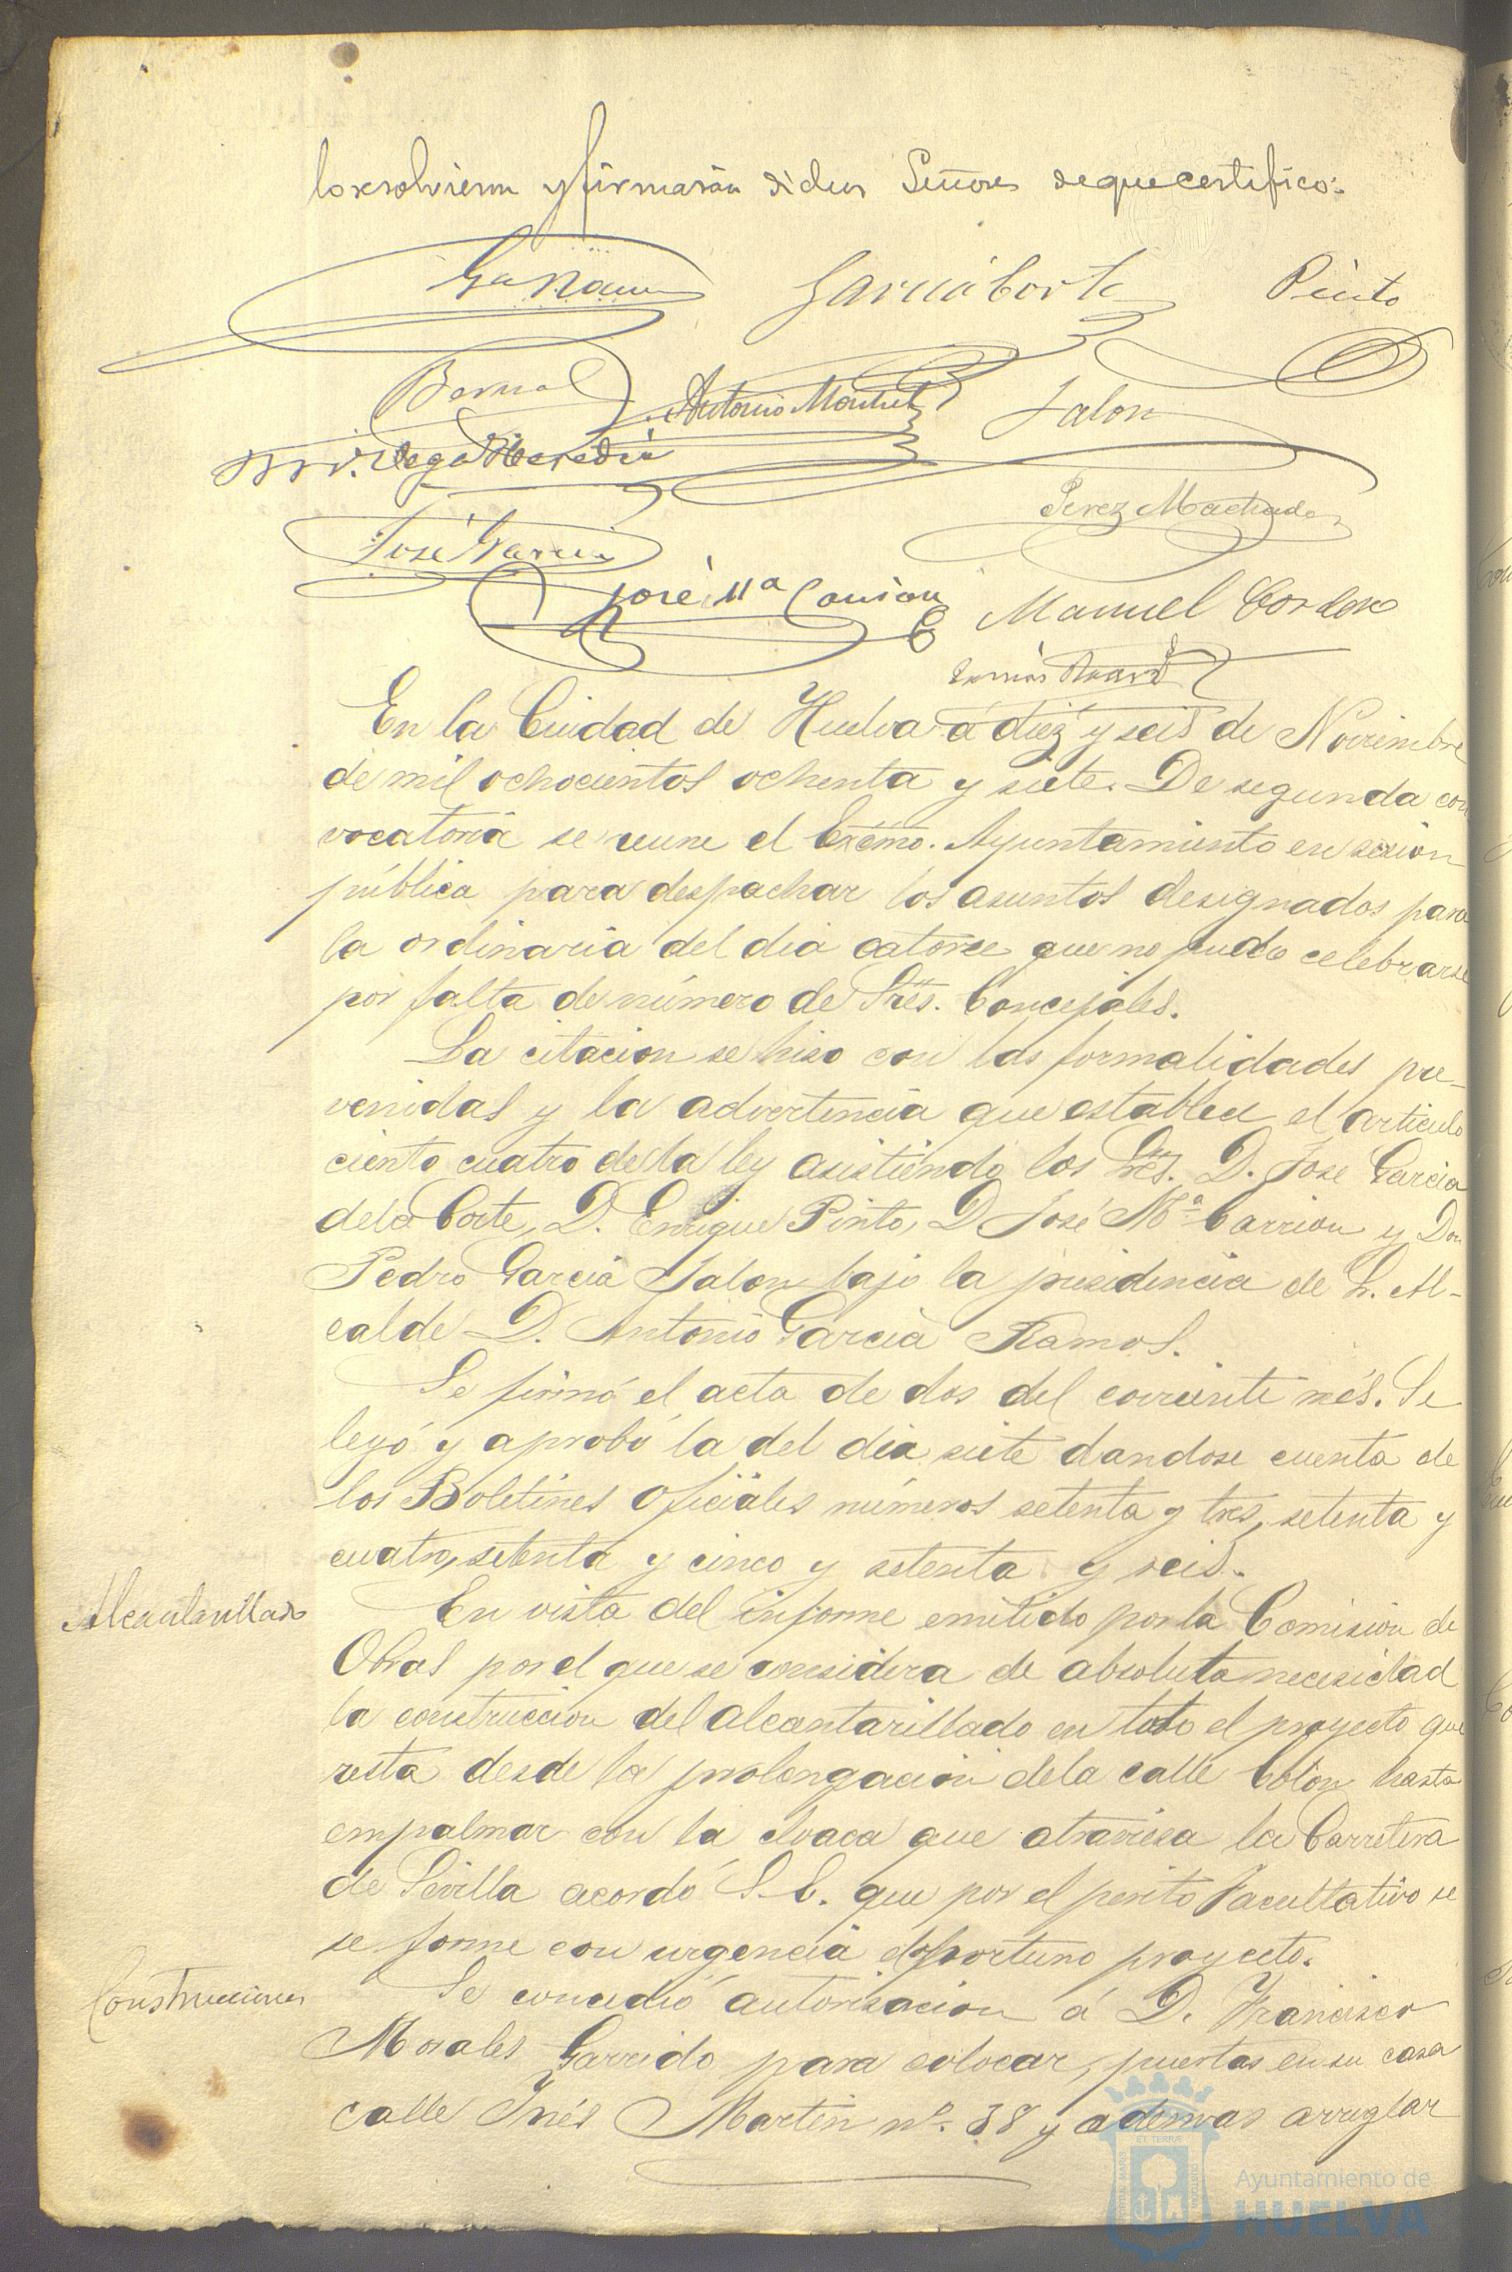 lo resolvieron y firmarán dichos Señores de que certifico.
García Corte Pinto
Bernal Antonio Jalon
Vega Heredia
Perez Machado
José García
José Mª Carrion Manuel Cordero
Tomás
En la Ciudad de Huelva á diez y seis de Noviembre
de mil ochocientos ochenta y siete. De segunda con
vocatoria se reune el Excmo. Ayuntamiento en sesion
pública para despachar los asuntos designados para
la ordinaria del dia catorce que no pudo celebrarse
por falta de número de Sres. Concejales.
La citacion se hiso con las formalidades pre-
venidas y la advertencia que establece el articulo
ciento cuatro de la ley asistiendo los Sres. D. Jose Garcia
de la Corte, D. Enrique Pinto, D José Mª Carrion y Don
Pedro Garcia Jalon bajo la presidencia de S. Al-
calde D. Antonio Garcia Ramos.
Se firmó el acta de dos del corriente més. Se
leyó y aprobó la del dia siete dandose cuenta de
los Boletines Oficiales números setenta y tres, setenta y
cuatro, setenta y cinco y setenta y seis.
Alcantarillado
En vista del informe emitido por la Comision de
Obras por el que se considera de absoluta necesidad
la construccion del alcantarillado en todo el proyecto que
resta desde la prolongacion de la calle Colon hasta
empalmar con la cloaca que atraviesa la Carretera
de Sevilla acordó S.E. que por el perito facultativo se
se forme con urgencia el oportuno proyecto.
Construcciones
Se concedió autorisacion á D. Francisco
Morales Garrido para colocar puertas en su casa
calle Inés Martin nº. 38 y ademas arreglar
Ayuntamiento de
HUELVA